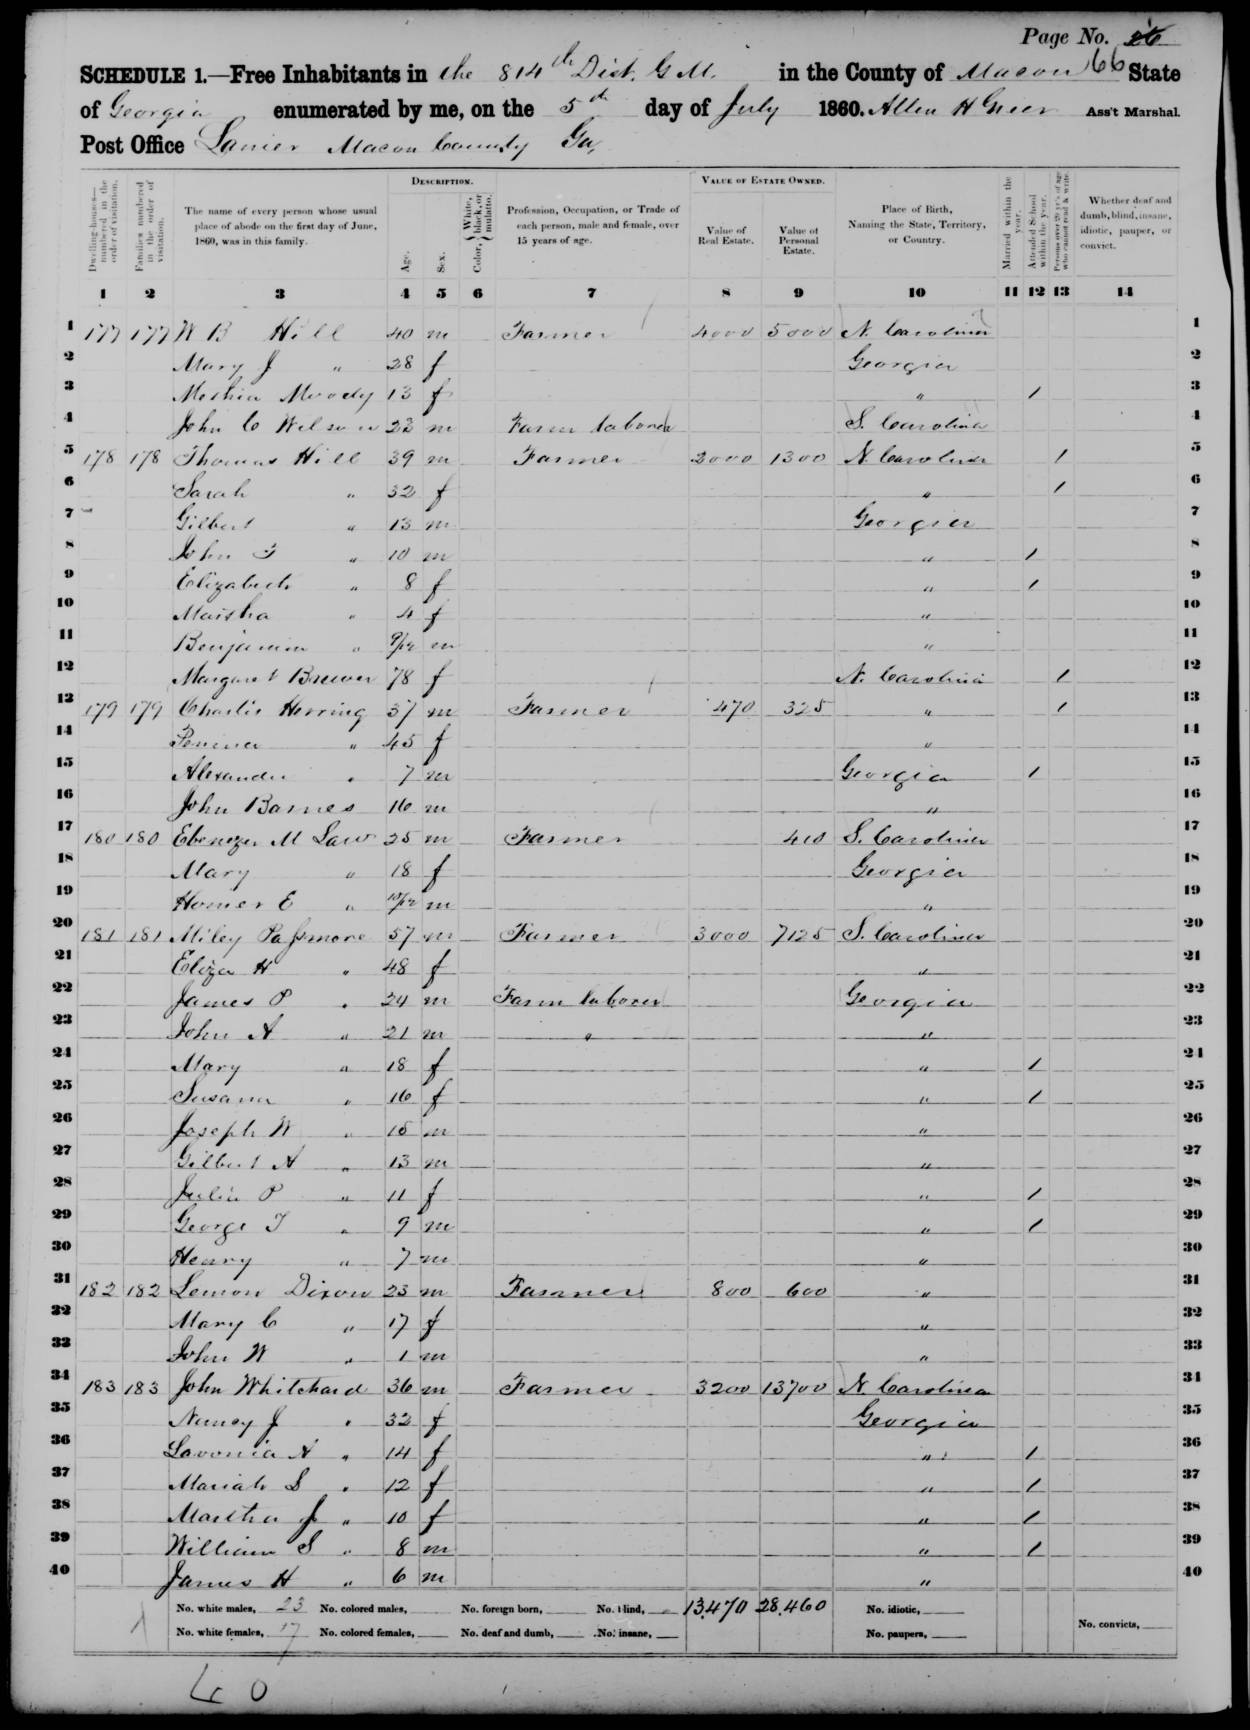 Page No. 26
66
SCHEDULE 1.—Free Inhabitants in the 814th Dist. G M. in the County of Macon State
of Georgia enumerated by me, on the 5th day of July 1860. Allen H Greer Ass't Marshal.
Post Office Lanier Macon County Ga,
DESCRIPTION. VALUE OF ESTATE OWNED.
Dwelling-houses—numbered in the order of visitation. Families numbered in the order of visitation. The name of every person whose usual place of abode on the first day of June, 1860, was in this family. Age. Sex. Color, {White, black, or mulatto. Profession, Occupation, or Trade of each person, male and female, over 15 years of age. Value of Real Estate. Value of Personal Estate. Place of Birth, Naming the State, Territory, or Country. Married within the year. Attended School within the year. Persons over 20 yr's of age who cannot read & write. Whether deaf and dumb, blind, insane, idiotic, pauper, or convict.
1 2 3 4 5 6 7 8 9 10 11 12 13 14
1 177 177 W B Hill 40 m Farmer 4000 5000 N. Carolina 1
2 Mary J " 28 f Georgia 2
3 Moody 13 f " / 3
4 John C Wilson 23 m Farm laborer S. Carolina 4
5 178 178 Thomas Hill 39 m Farmer 2000 1300 N. Carolina / 5
6 Sarah " 32 f " / 6
7 Gilbert " 13 m Georgia 7
8 John F " 10 m " / 8
9 Elizabeth " 8 f " / 9
10 Martha " 4 f " 10
11 Benjamin " 9/12 m " 11
12 Margaret Brewer 78 f N. Carolina / 12
13 179 179 Charlis Herring 37 m Farmer 470 325 " / 13
14 Penina " 45 f " 14
15 Alexander " 7 m Georgia / 15
16 John Barnes 16 m " 16
17 180 180 Ebenezer M Law 25 m Farmer 410 S. Carolina 17
18 Mary " 18 f Georgia 18
19 Homer E " 10/12 m " 19
20 181 181 Miley Passmore 57 m Farmer 3000 7125 S. Carolina 20
21 Eliza H " 48 f " 21
22 James P " 24 m Farm laborer Georgia 22
23 John A " 21 m " " 23
24 Mary " 18 f " / 24
25 Susana " 16 f " / 25
26 Joseph W " 15 m " 26
27 Gilbert A " 13 m " 27
28 Julia P " 11 f " / 28
29 George T " 9 m " / 29
30 Henry " 7 m " 30
31 182 182 Lemon Dixon 23 m Farmer 800 600 " 31
32 Mary C " 17 f " 32
33 John W " 1 m " 33
34 183 183 John Whitchard 36 m Farmer 3200 13700 N. Carolina 34
35 Nancy J " 32 f Georgia 35
36 Lavonia A " 14 f " / 36
37 Mariah S " 12 f " / 37
38 Martha J " 10 f " / 38
39 William S " 8 m " / 39
40 James H " 6 m " 40
No. white males, 23 No. colored males, No. foreign born, No. blind, 13,470 28,460 No. idiotic,
No. white females, 17 No. colored females, No. deaf and dumb, No. insane, No. paupers, No. convicts,
40